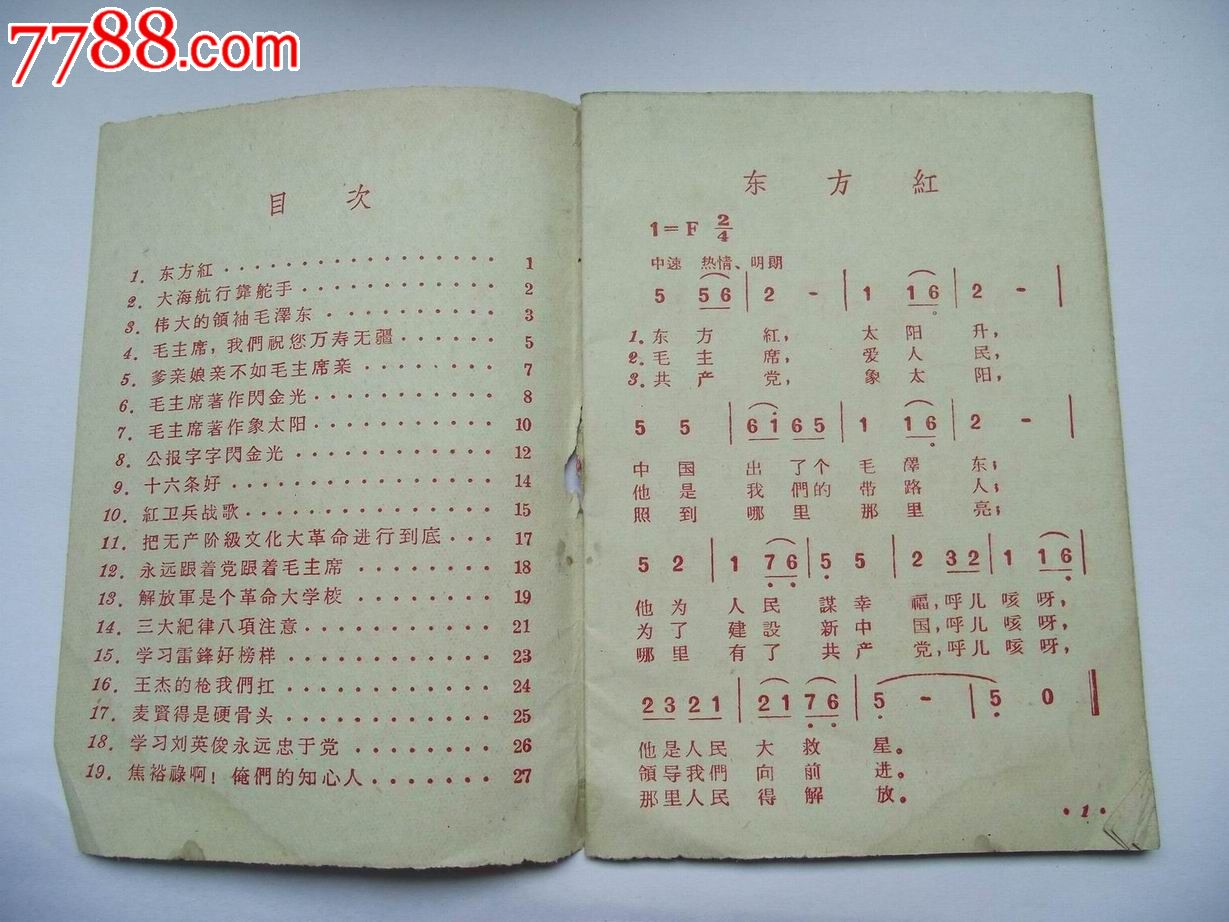 7788.com
目 次
1. 东方紅 1
2. 大海航行靠舵手 2
3. 伟大的領袖毛澤东 3
4. 毛主席,我們祝您万寿无疆 5
5. 爹亲娘亲不如毛主席亲 7
6. 毛主席著作閃金光 8
7. 毛主席著作象太阳 10
8. 公报字字閃金光 12
9. 十六条好 14
10. 紅卫兵战歌 15
11. 把无产阶級文化大革命进行到底 17
12. 永远跟着党跟着毛主席 18
13. 解放軍是个革命大学校 19
14. 三大紀律八項注意 21
15. 学习雷鋒好榜样 23
16. 王杰的枪我們扛 24
17. 麦賢得是硬骨头 25
18. 学习刘英俊永远忠于党 26
19. 焦裕祿啊!俺們的知心人 27
东 方 紅
1=F 2/4
中速 热情、明朗
5 56 | 2 - | 1 16 | 2 - |
1. 东 方 紅, 太 阳 升,
2. 毛 主 席, 爱 人 民,
3. 共 产 党, 象 太 阳,
5 5 | 6i 65 | 1 16 | 2 - |
中 国 出 了个 毛 澤 东;
他 是 我 們的 带 路 人;
照 到 哪 里 那 里 亮;
5 2 | 1 76 | 5 5 | 2 32 | 1 16 |
他 为 人 民 謀 幸 福,呼儿 咳 呀,
为 了 建 設 新 中 国,呼儿 咳 呀,
哪 里 有 了 共 产 党,呼儿 咳 呀,
23 21 | 21 76 | 5 - | 5 0 ‖
他是人民 大 救 星。
領导我們 向 前 进。
那里人民 得 解 放。
· 1 ·